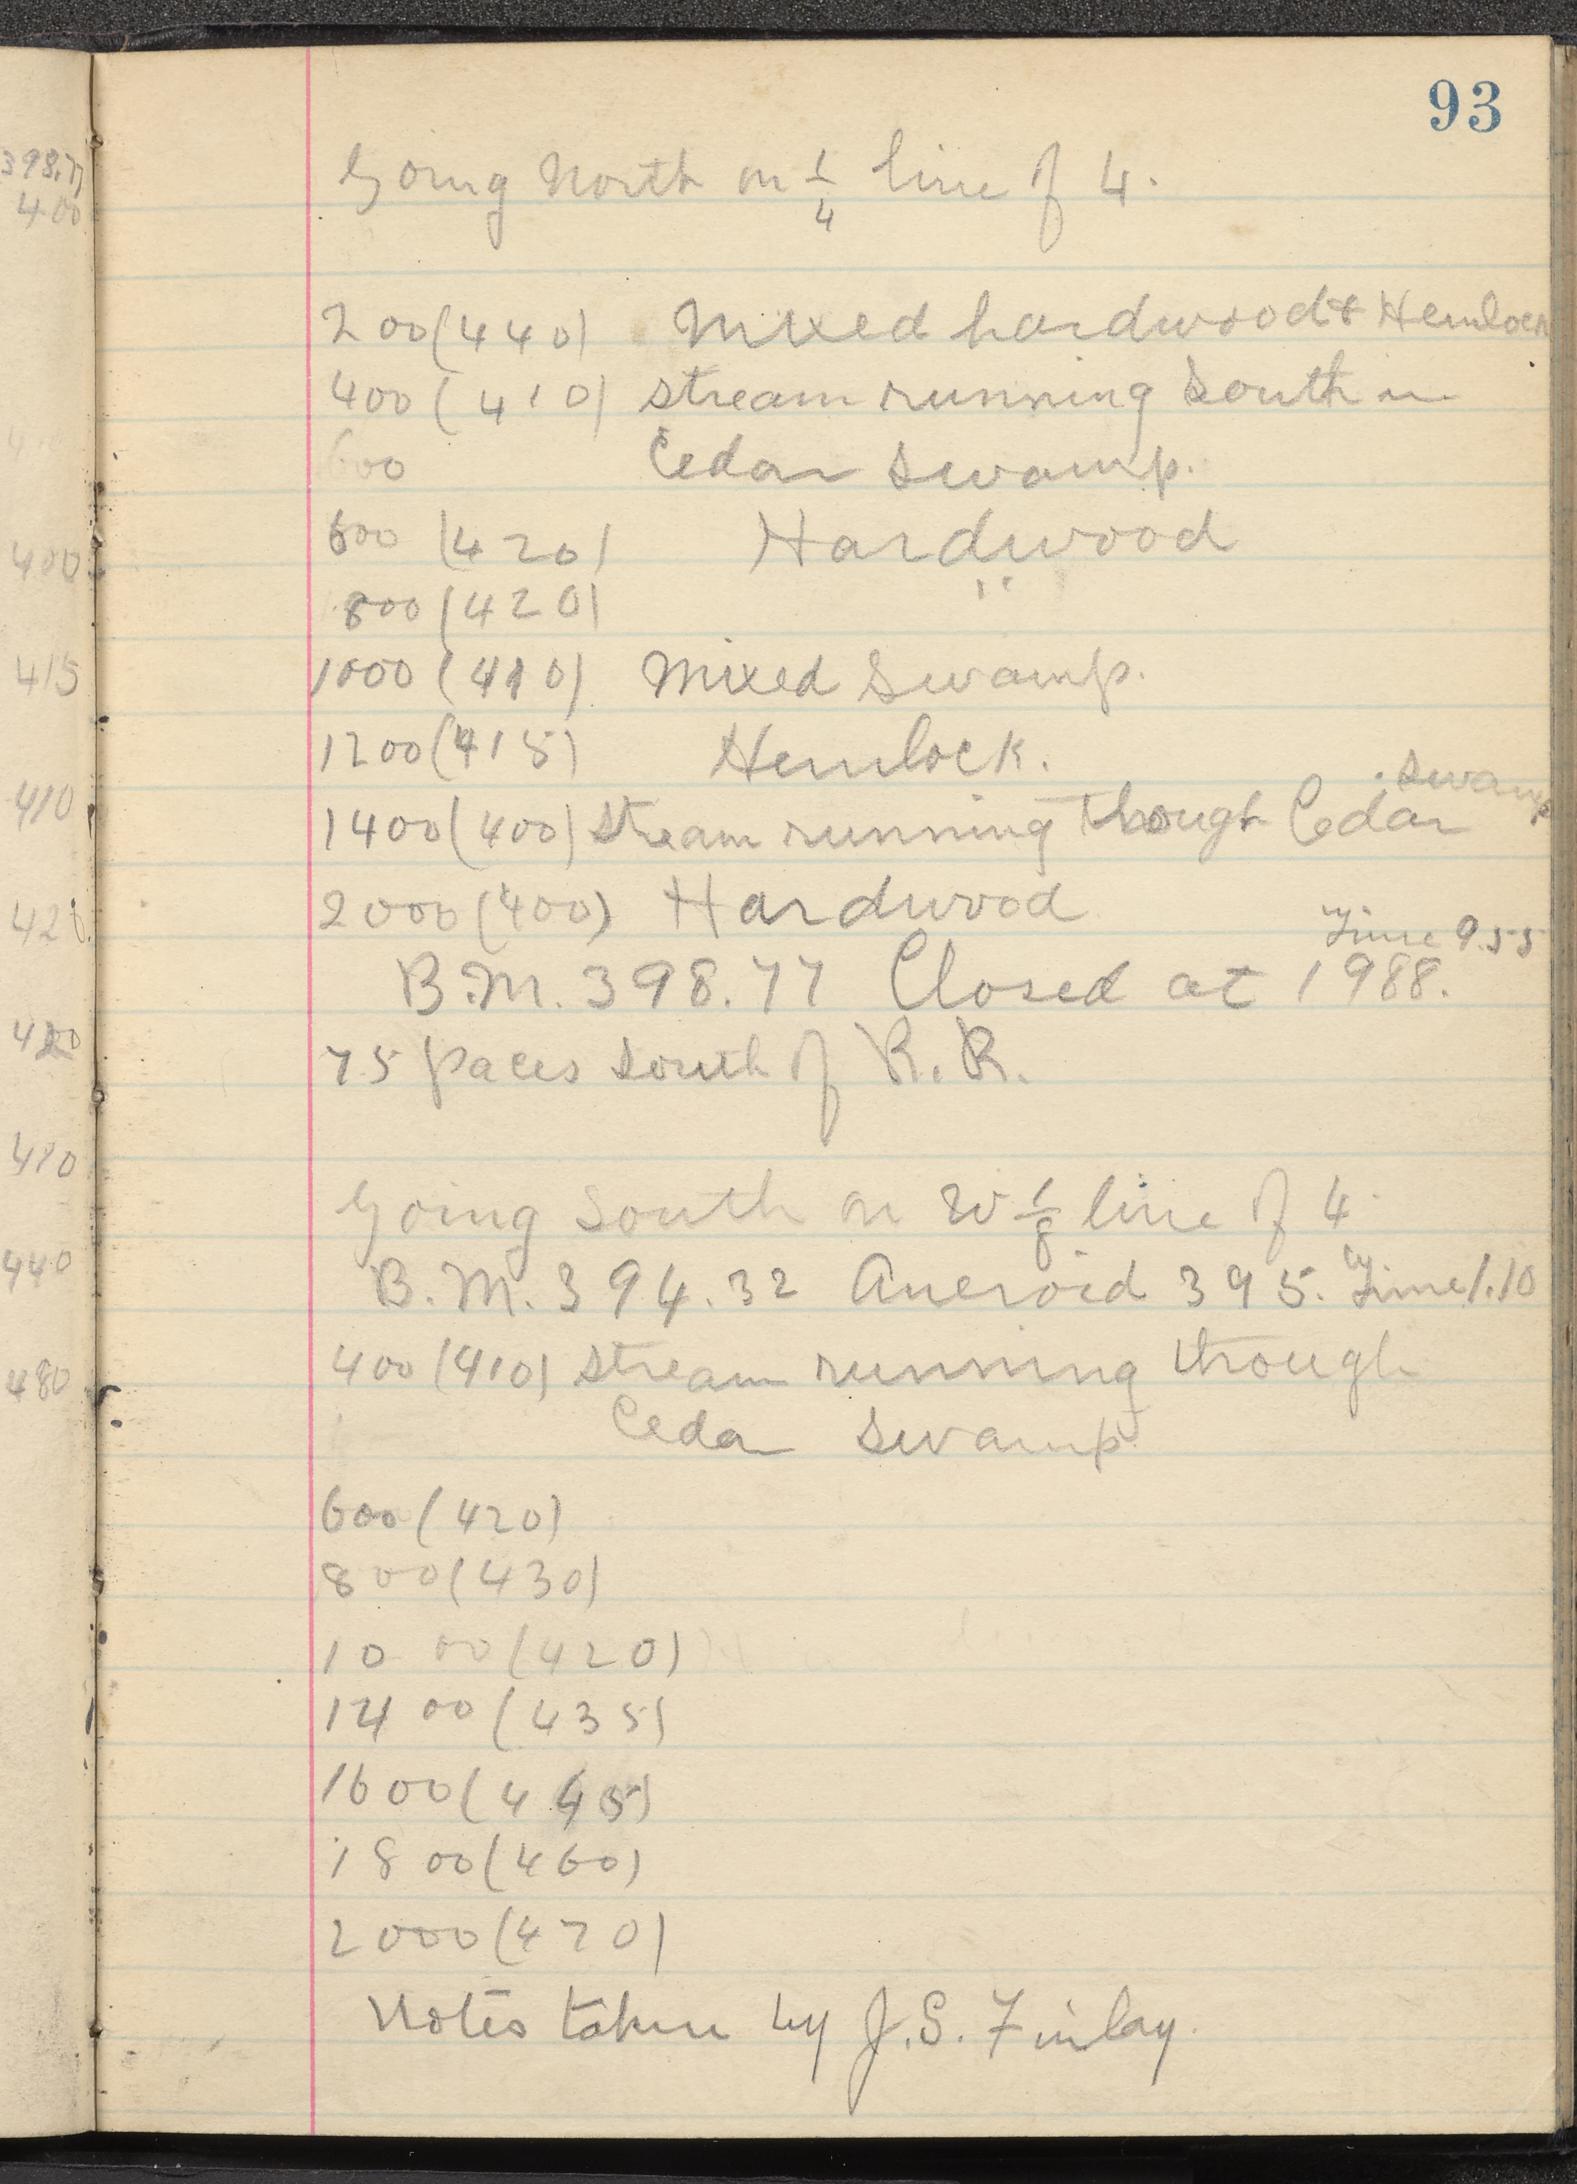 93
398.77
400
400
415
410
420
420
410
440
480
Going North on 1/4 line of 4.
200 (440) Mixed hardwood & Hemlock
400 (410) stream running South in
600 Cedar Swamp.
600 (420) Hardwood
800 (420) "
1000 (410) Mixed Swamp.
1200 (415) Hemlock.
1400 (400) stream running though Cedar swamp
2000 (400) Hardwood
B.M. 398.77 Closed at 1988. Time 9.55
75 paces south of R.R.
Going South on W 1/8 line of 4.
B.M. 394.32 Aneroid 395. Time 1.10
400 (410) stream running through
Cedar Swamp
600 (420)
800 (430)
1000 (420)
1400 (435)
1600 (445)
1800 (460)
2000 (470)
Notes taken by J.S. Finlay.